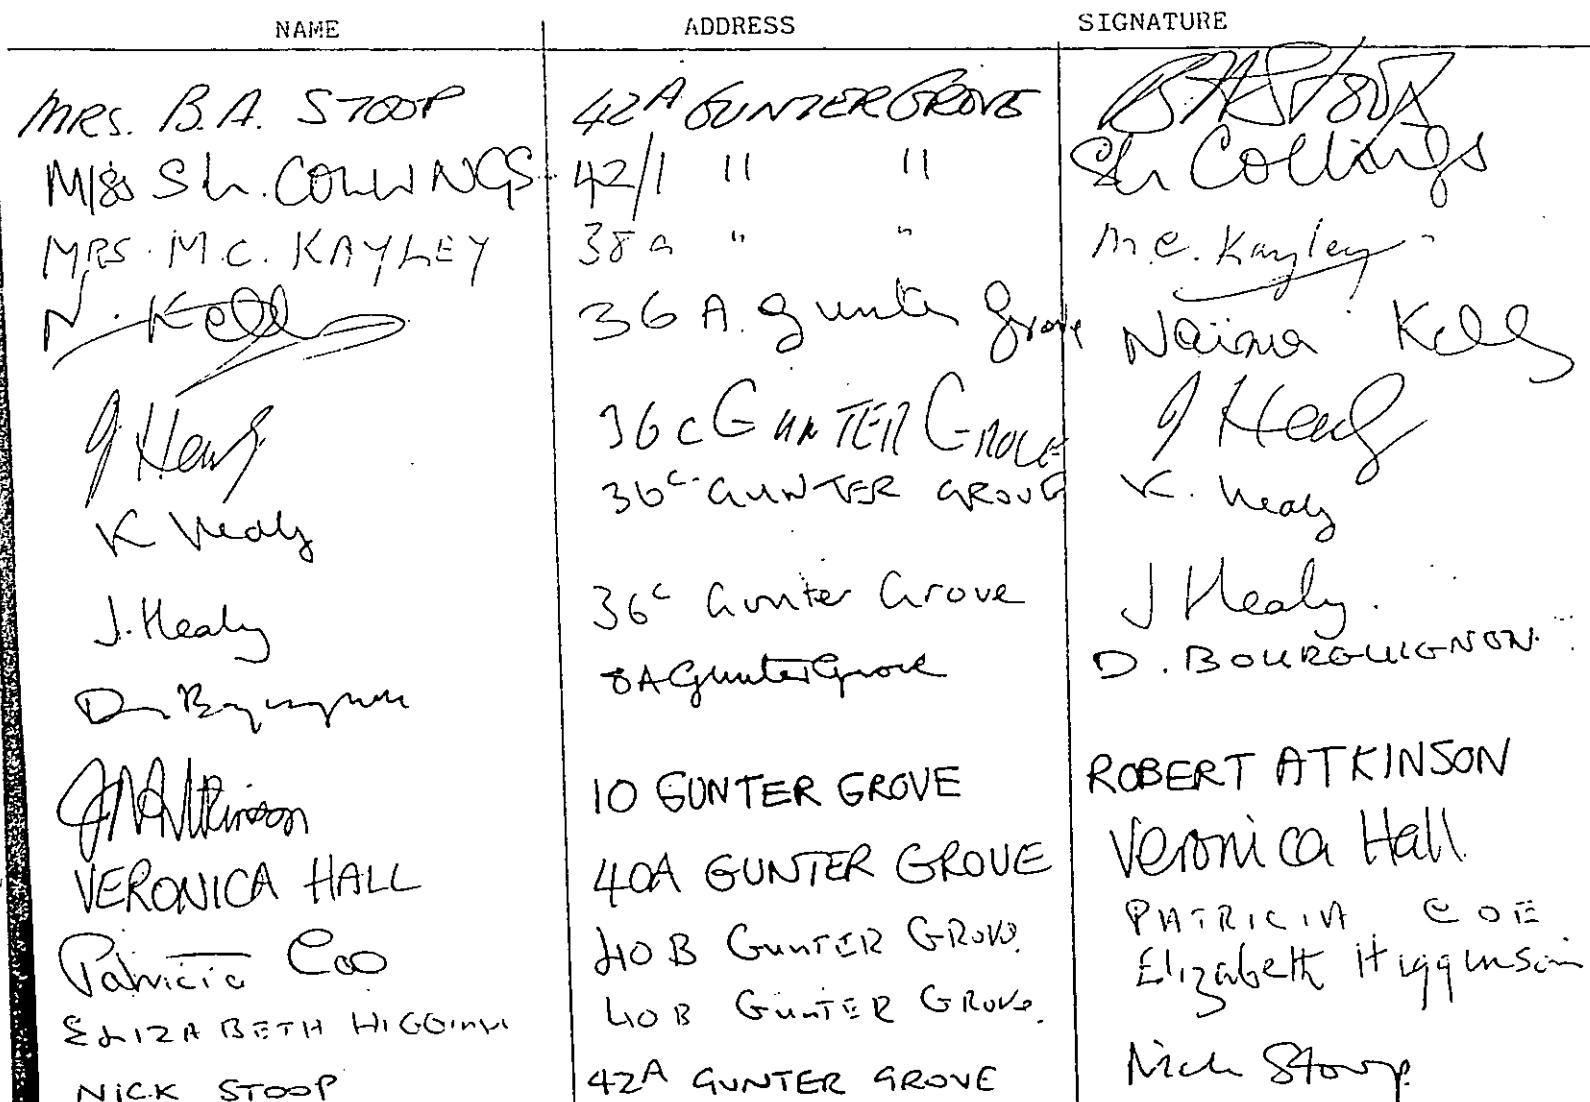 NAME ADDRESS SIGNATURE
MRS. B.A. STOOP 42A GUNTER GROVE BAStoop
Miss Sh. COLLINGS 42/1 " " Sh Collings
MRS. M.C. KAYLEY 38a " " M.C. Kayley
N. Kelly 36 A. Gunter Grove Naima Kelly
J Healy 36c GUNTER GROVE J Healy
K Healy 36c GUNTER GROVE K. Healy
J. Healy 36c Gunter Grove J Healy.
8A Gunter Grove D. BOURGUIGNON.
Atkinson 10 GUNTER GROVE ROBERT ATKINSON
VERONICA HALL 40A GUNTER GROVE Veronica Hall
Patricia Coe 40B GUNTER GROVE. PATRICIA COE
ELIZABETH HIGGINSON 40B GUNTER GROVE. Elizabeth Higginson
NICK STOOP 42A GUNTER GROVE Nick Stoop